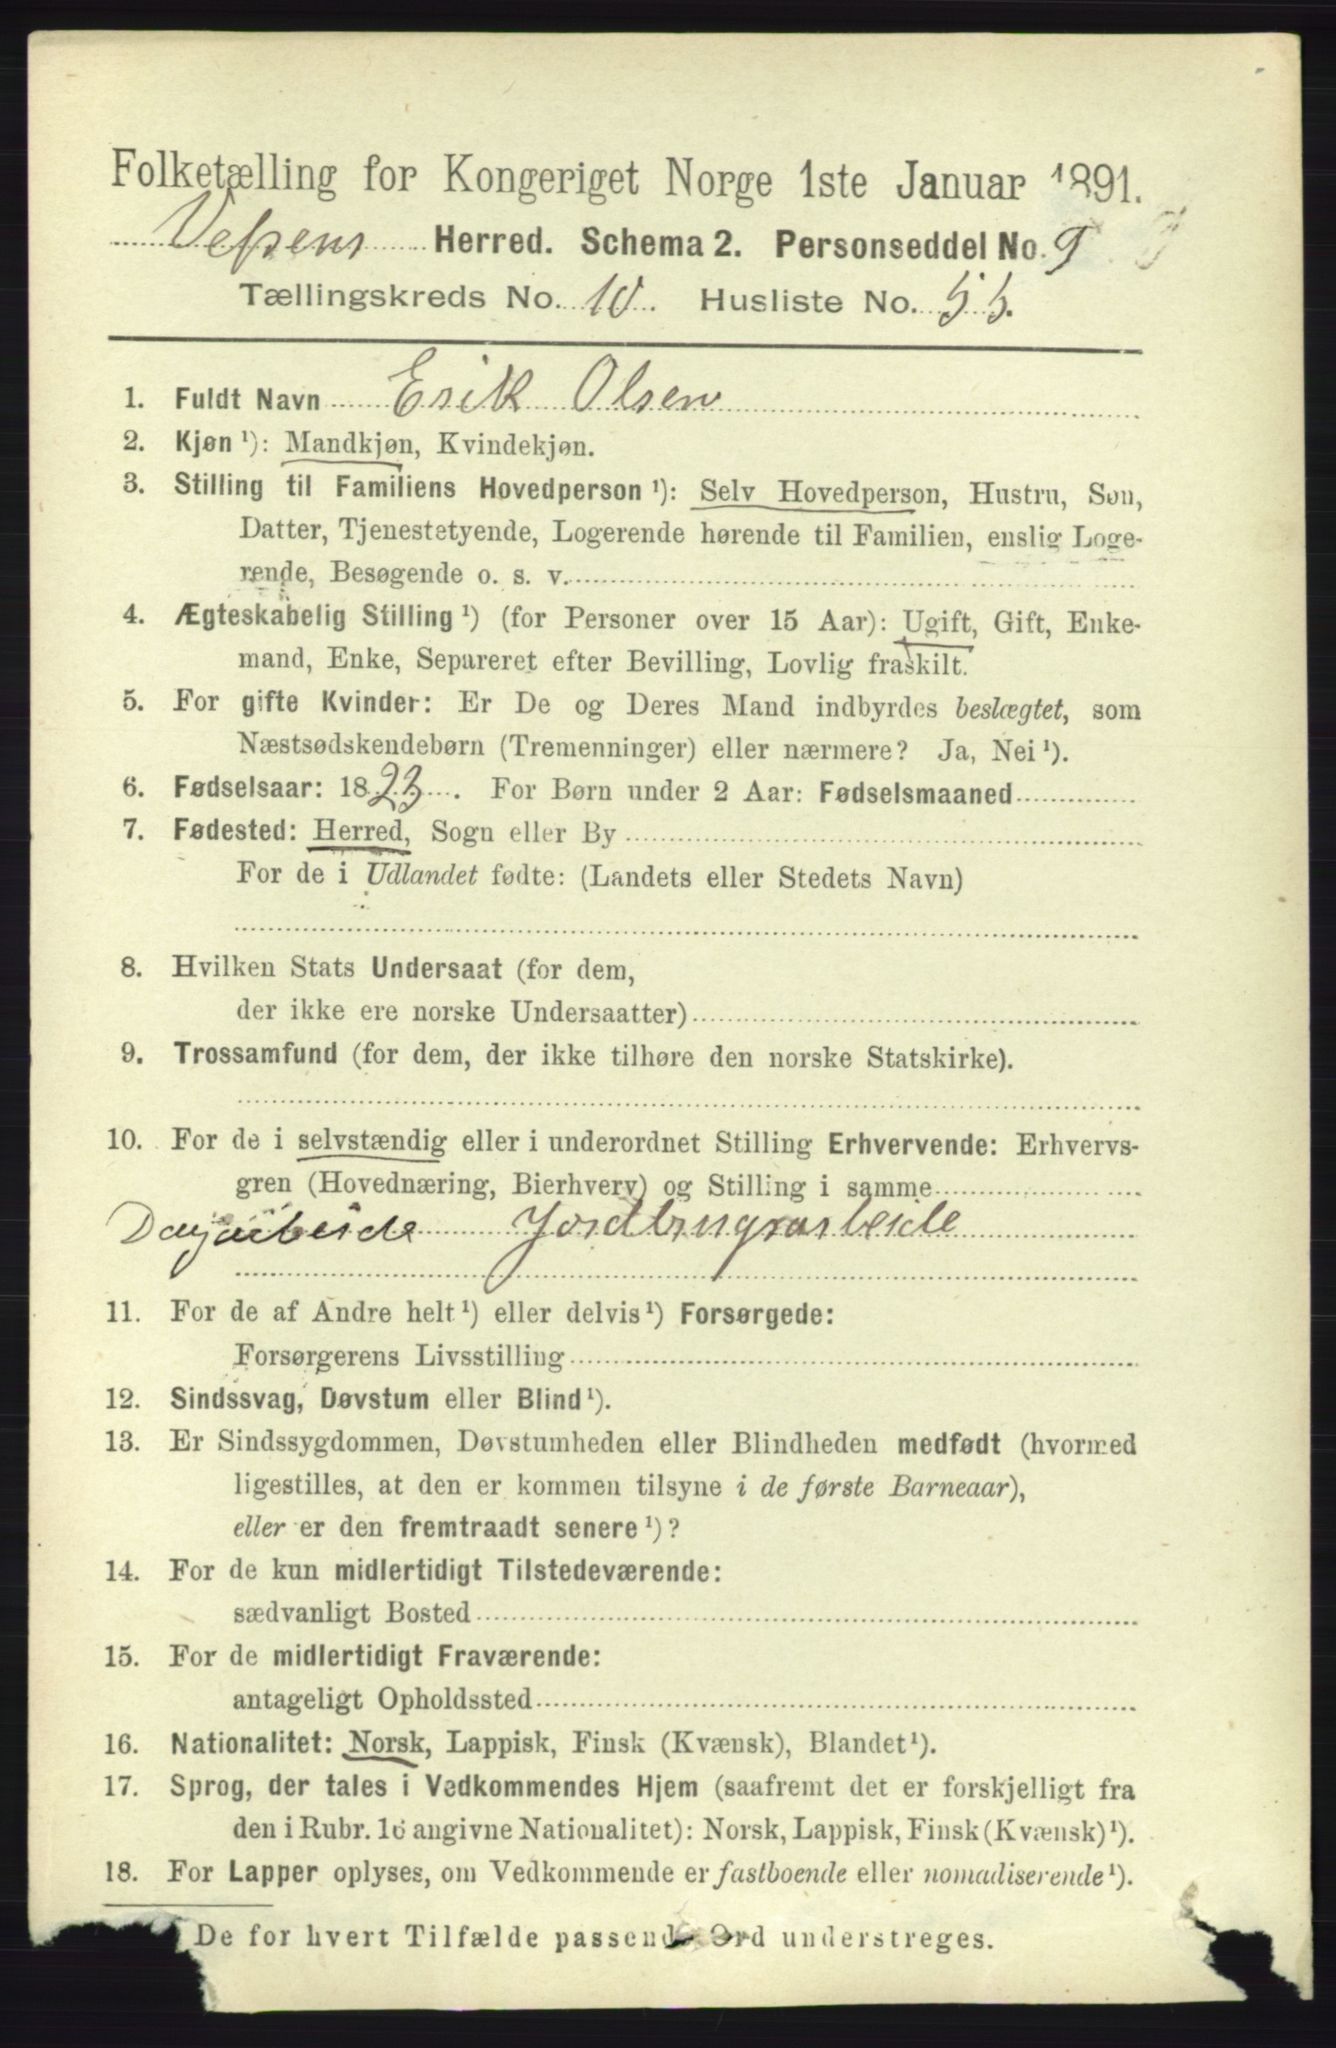 Folketælling for Kongeriget Norge 1ste Januar 1891.
Vefsens Herred. Schema 2. Personseddel No. 9
Tællingskreds No. 10. Husliste No. 55.
1. Fuldt Navn Erik Olsen
2. Kjøn ¹): Mandkjøn, Kvindekjøn.
3. Stilling til Familiens Hovedperson ¹): Selv Hovedperson, Hustru, Søn,
Datter, Tjenestetyende, Logerende hørende til Familien, enslig Loge-
rende, Besøgende o. s. v.
4. Ægteskabelig Stilling ¹) (for Personer over 15 Aar): Ugift, Gift, Enke-
mand, Enke, Separeret efter Bevilling, Lovlig fraskilt.
5. For gifte Kvinder: Er De og Deres Mand indbyrdes beslægtet, som
Næstsødskendebørn (Tremenninger) eller nærmere? Ja, Nei ¹).
6. Fødselsaar: 1823. For Børn under 2 Aar: Fødselsmaaned
7. Fødested: Herred, Sogn eller By
For de i Udlandet fødte: (Landets eller Stedets Navn)
8. Hvilken Stats Undersaat (for dem,
der ikke ere norske Undersaatter)
9. Trossamfund (for dem, der ikke tilhøre den norske Statskirke).
10. For de i selvstændig eller i underordnet Stilling Erhvervende: Erhvervs-
gren (Hovednæring, Bierhverv) og Stilling i samme
Dagarbeide Jordbrugsarbeide
11. For de af Andre helt ¹) eller delvis ¹) Forsørgede:
Forsørgerens Livsstilling
12. Sindssvag, Døvstum eller Blind ¹).
13. Er Sindssygdommen, Døvstumheden eller Blindheden medfødt (hvormed
ligestilles, at den er kommen tilsyne i de første Barneaar),
eller er den fremtraadt senere ¹)?
14. For de kun midlertidigt Tilstedeværende:
sædvanligt Bosted
15. For de midlertidigt Fraværende:
antageligt Opholdssted
16. Nationalitet: Norsk, Lappisk, Finsk (Kvænsk), Blandet ¹).
17. Sprog, der tales i Vedkommendes Hjem (saafremt det er forskjelligt fra
den i Rubr. 16 angivne Nationalitet): Norsk, Lappisk, Finsk (Kvænsk) ¹).
18. For Lapper oplyses, om Vedkommende er fastboende eller nomadiserende ¹).
De for hvert Tilfælde passende Ord understreges.